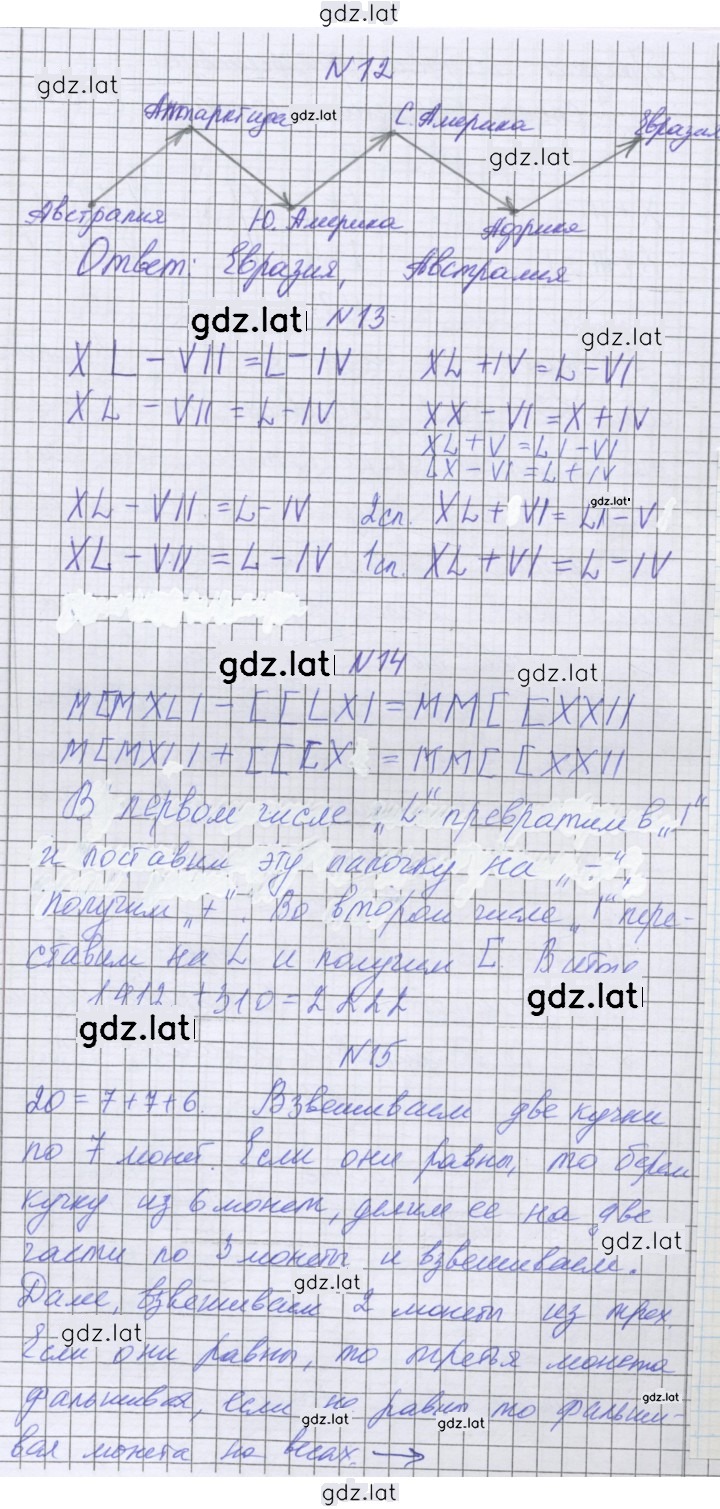 gdz.lat
N12
gdz.lat
Антарктида gdz.lat С. Америка Евразия
gdz.lat
Австралия Ю. Америка Африка
Ответ: Евразия, Австралия
gdz.lat N13
gdz.lat
XL - VII = L - IV XL + IV = L - VI
XL - VII = L - IV XX - VI = X + IV
XL + V = LI - VI
LX - VI = L + IV
gdz.lat
XL - VII = L - IV 2сп. XL + VI = LI - V
XL - VII = L - IV 1сп. XL + VI = L - IV
gdz.lat N14
gdz.lat
MCMXLI - CCLXI = MMCCXXII
MCMXII + CCCX = MMCCXXII
В первом числе „L" превратим в „I"
и поставим эту палочку на „-",
получим „+". Во втором числе „I" пере-
ставим на L и получим C. В итоге
1912 + 310 = 2222
gdz.lat
gdz.lat
N15
20 = 7 + 7 + 6. Взвешиваем две кучки
по 7 монет. Если они равны, то берем
кучку из 6 монет, делим ее на две
gdz.lat
части по 3 монеты и взвешиваем.
gdz.lat
Далее, взвешиваем 2 монеты из трех.
gdz.lat
Если они равны, то третья монета
gdz.lat
фальшивая, если не равны то фальши-
gdz.lat gdz.lat
вая монета на весах. →
gdz.lat